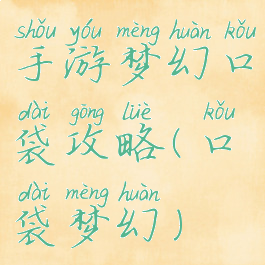 shǒu yóu mèng huàn kǒu
手游梦幻口
dài gōng lüè kǒu
袋攻略(口
dài mèng huàn
袋梦幻)